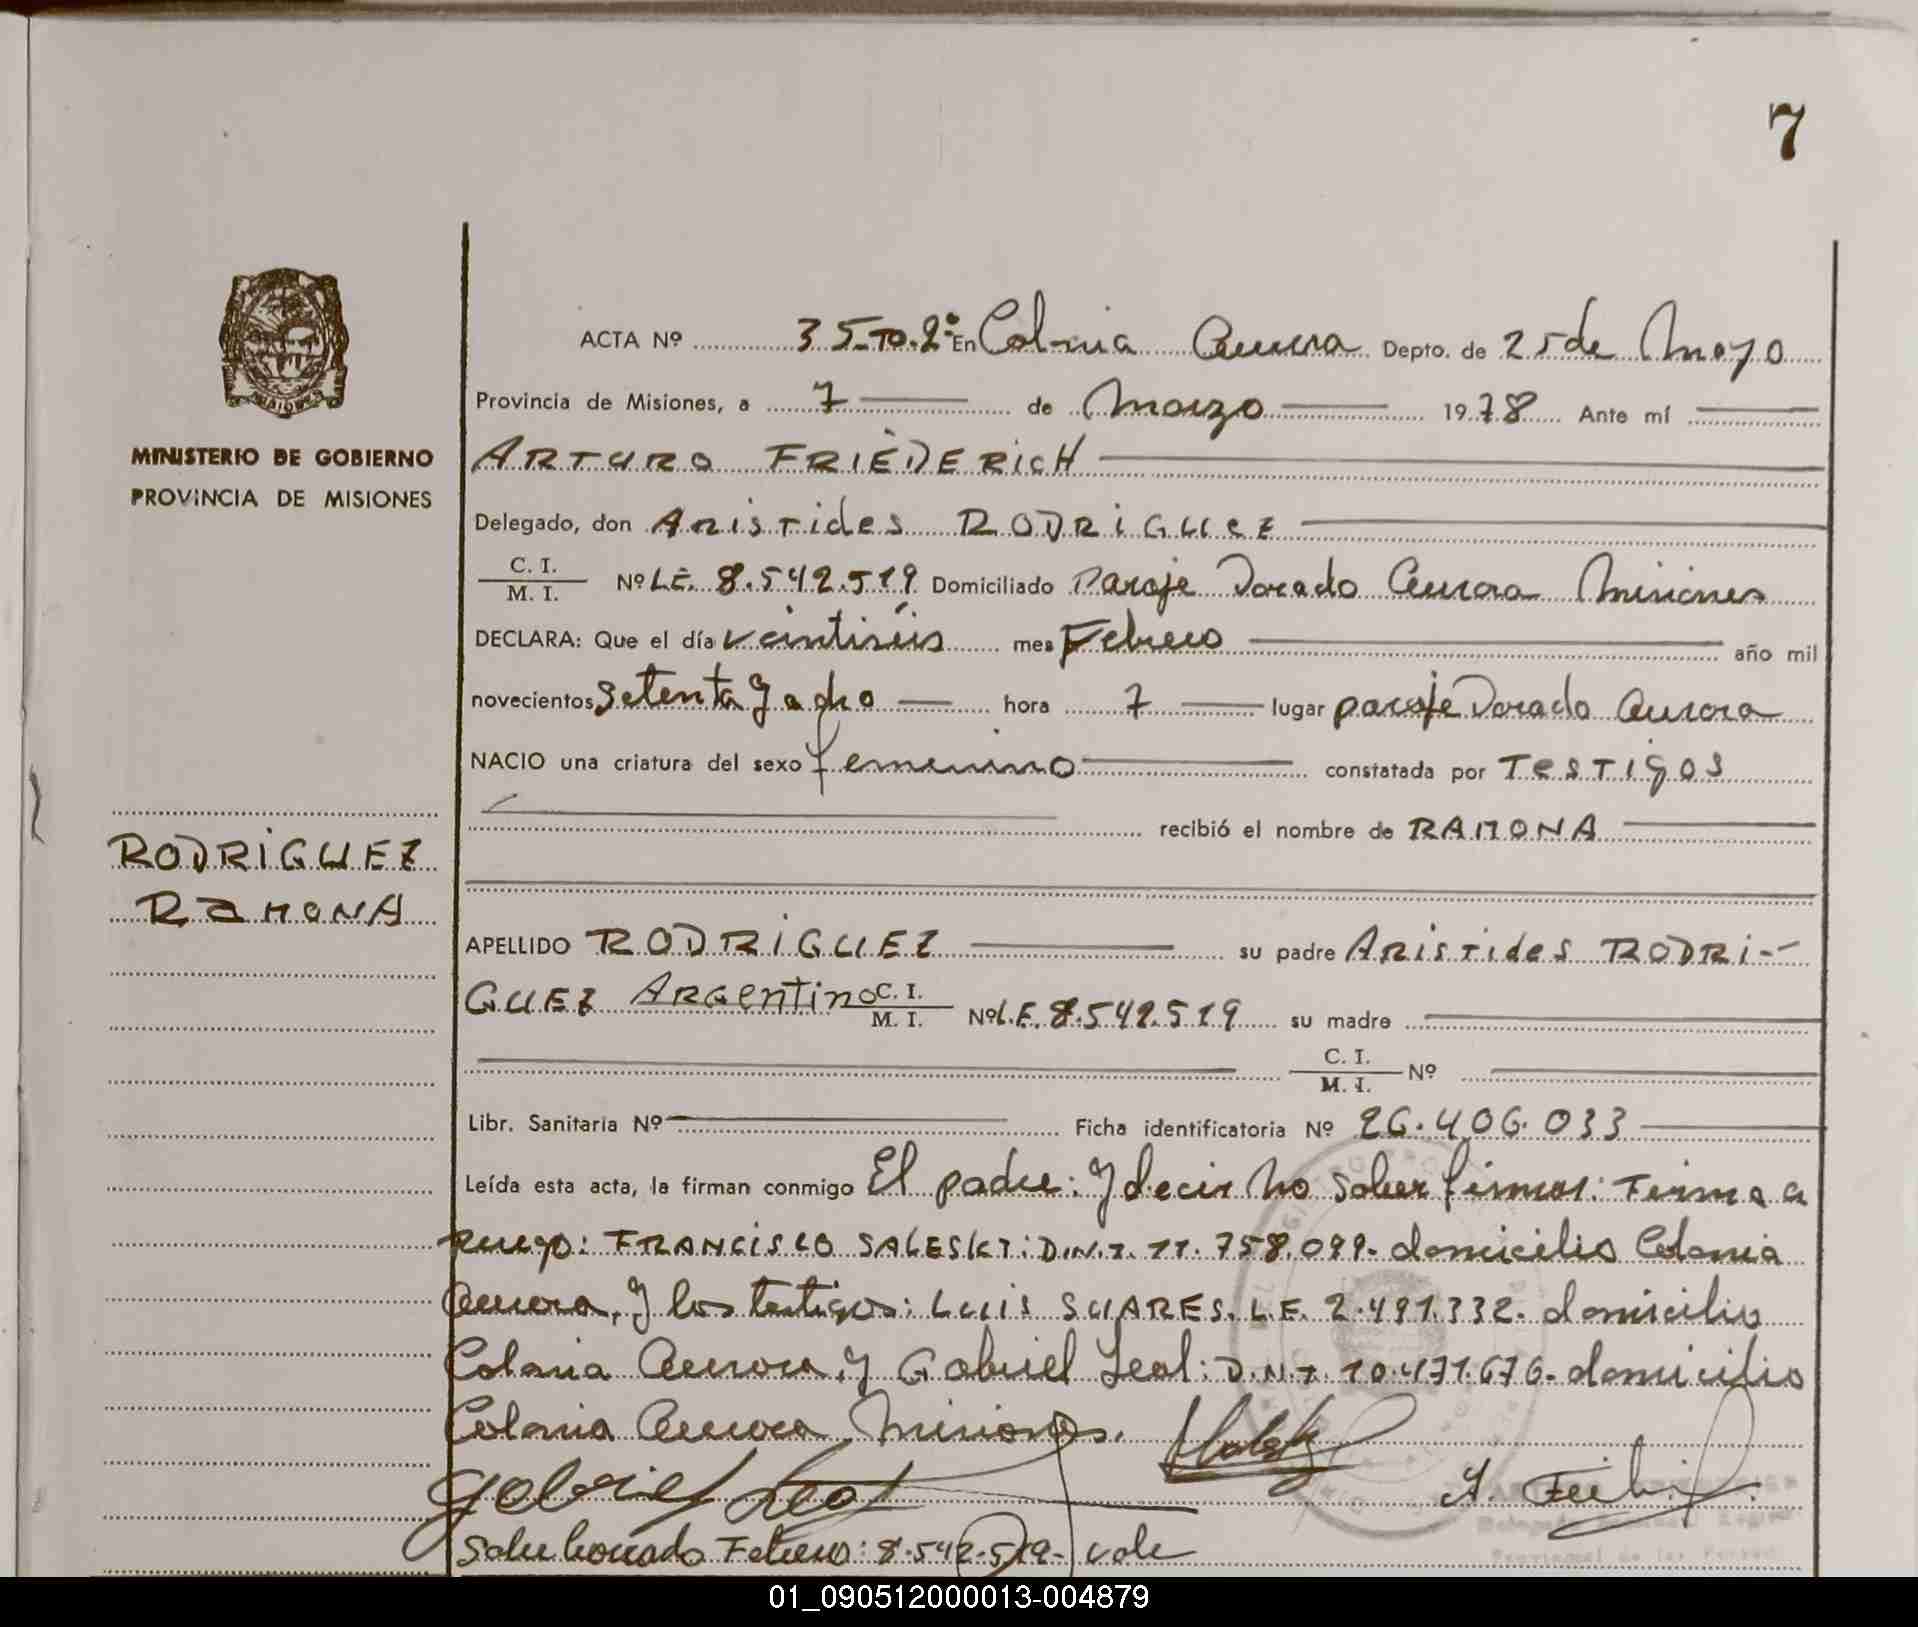 7
ACTA Nº 35 - Tº. 2º En Colonia Aurora Depto. de 25 de Mayo
Provincia de Misiones, a 7 de Marzo 1978 Ante mí
MINISTERIO DE GOBIERNO
PROVINCIA DE MISIONES
ARTURO FRIEDERICH
Delegado, don Aristides RODRIGUEZ
C. I.
M. I.
Nº L.E. 8.542.519 Domiciliado Paraje Dorado Aurora Misiones
DECLARA: Que el día veintiséis mes Febrero año mil
novecientos setenta y ocho hora 7 lugar paraje Dorado Aurora
NACIO una criatura del sexo femenino constatada por Testigos
recibió el nombre de RAMONA
RODRIGUEZ
RAMONA
APELLIDO RODRIGUEZ su padre Aristides RODRI-
GUEZ Argentino C. I.
M. I. Nº L.E. 8.542.519 su madre
C. I.
M. I. Nº
Libr. Sanitaria Nº Ficha identificatoria Nº 26.406.033
Leída esta acta, la firman conmigo El padre: y decir no saber firmar: Firma a
ruego: FRANCISCO SALESKI: D.N.I. 11.758.099- domicilio Colonia
Aurora, y los testigos: LUIS SUARES. L.E. 2.491.332- domicilio
Colonia Aurora, y Gabriel Leal: D.N.I. 10.471.676- domicilio
Colonia Aurora Misiones.
Gabriel Leal
Sobre borrado Febrero: 8.542.519- vale
01_090512000013-004879